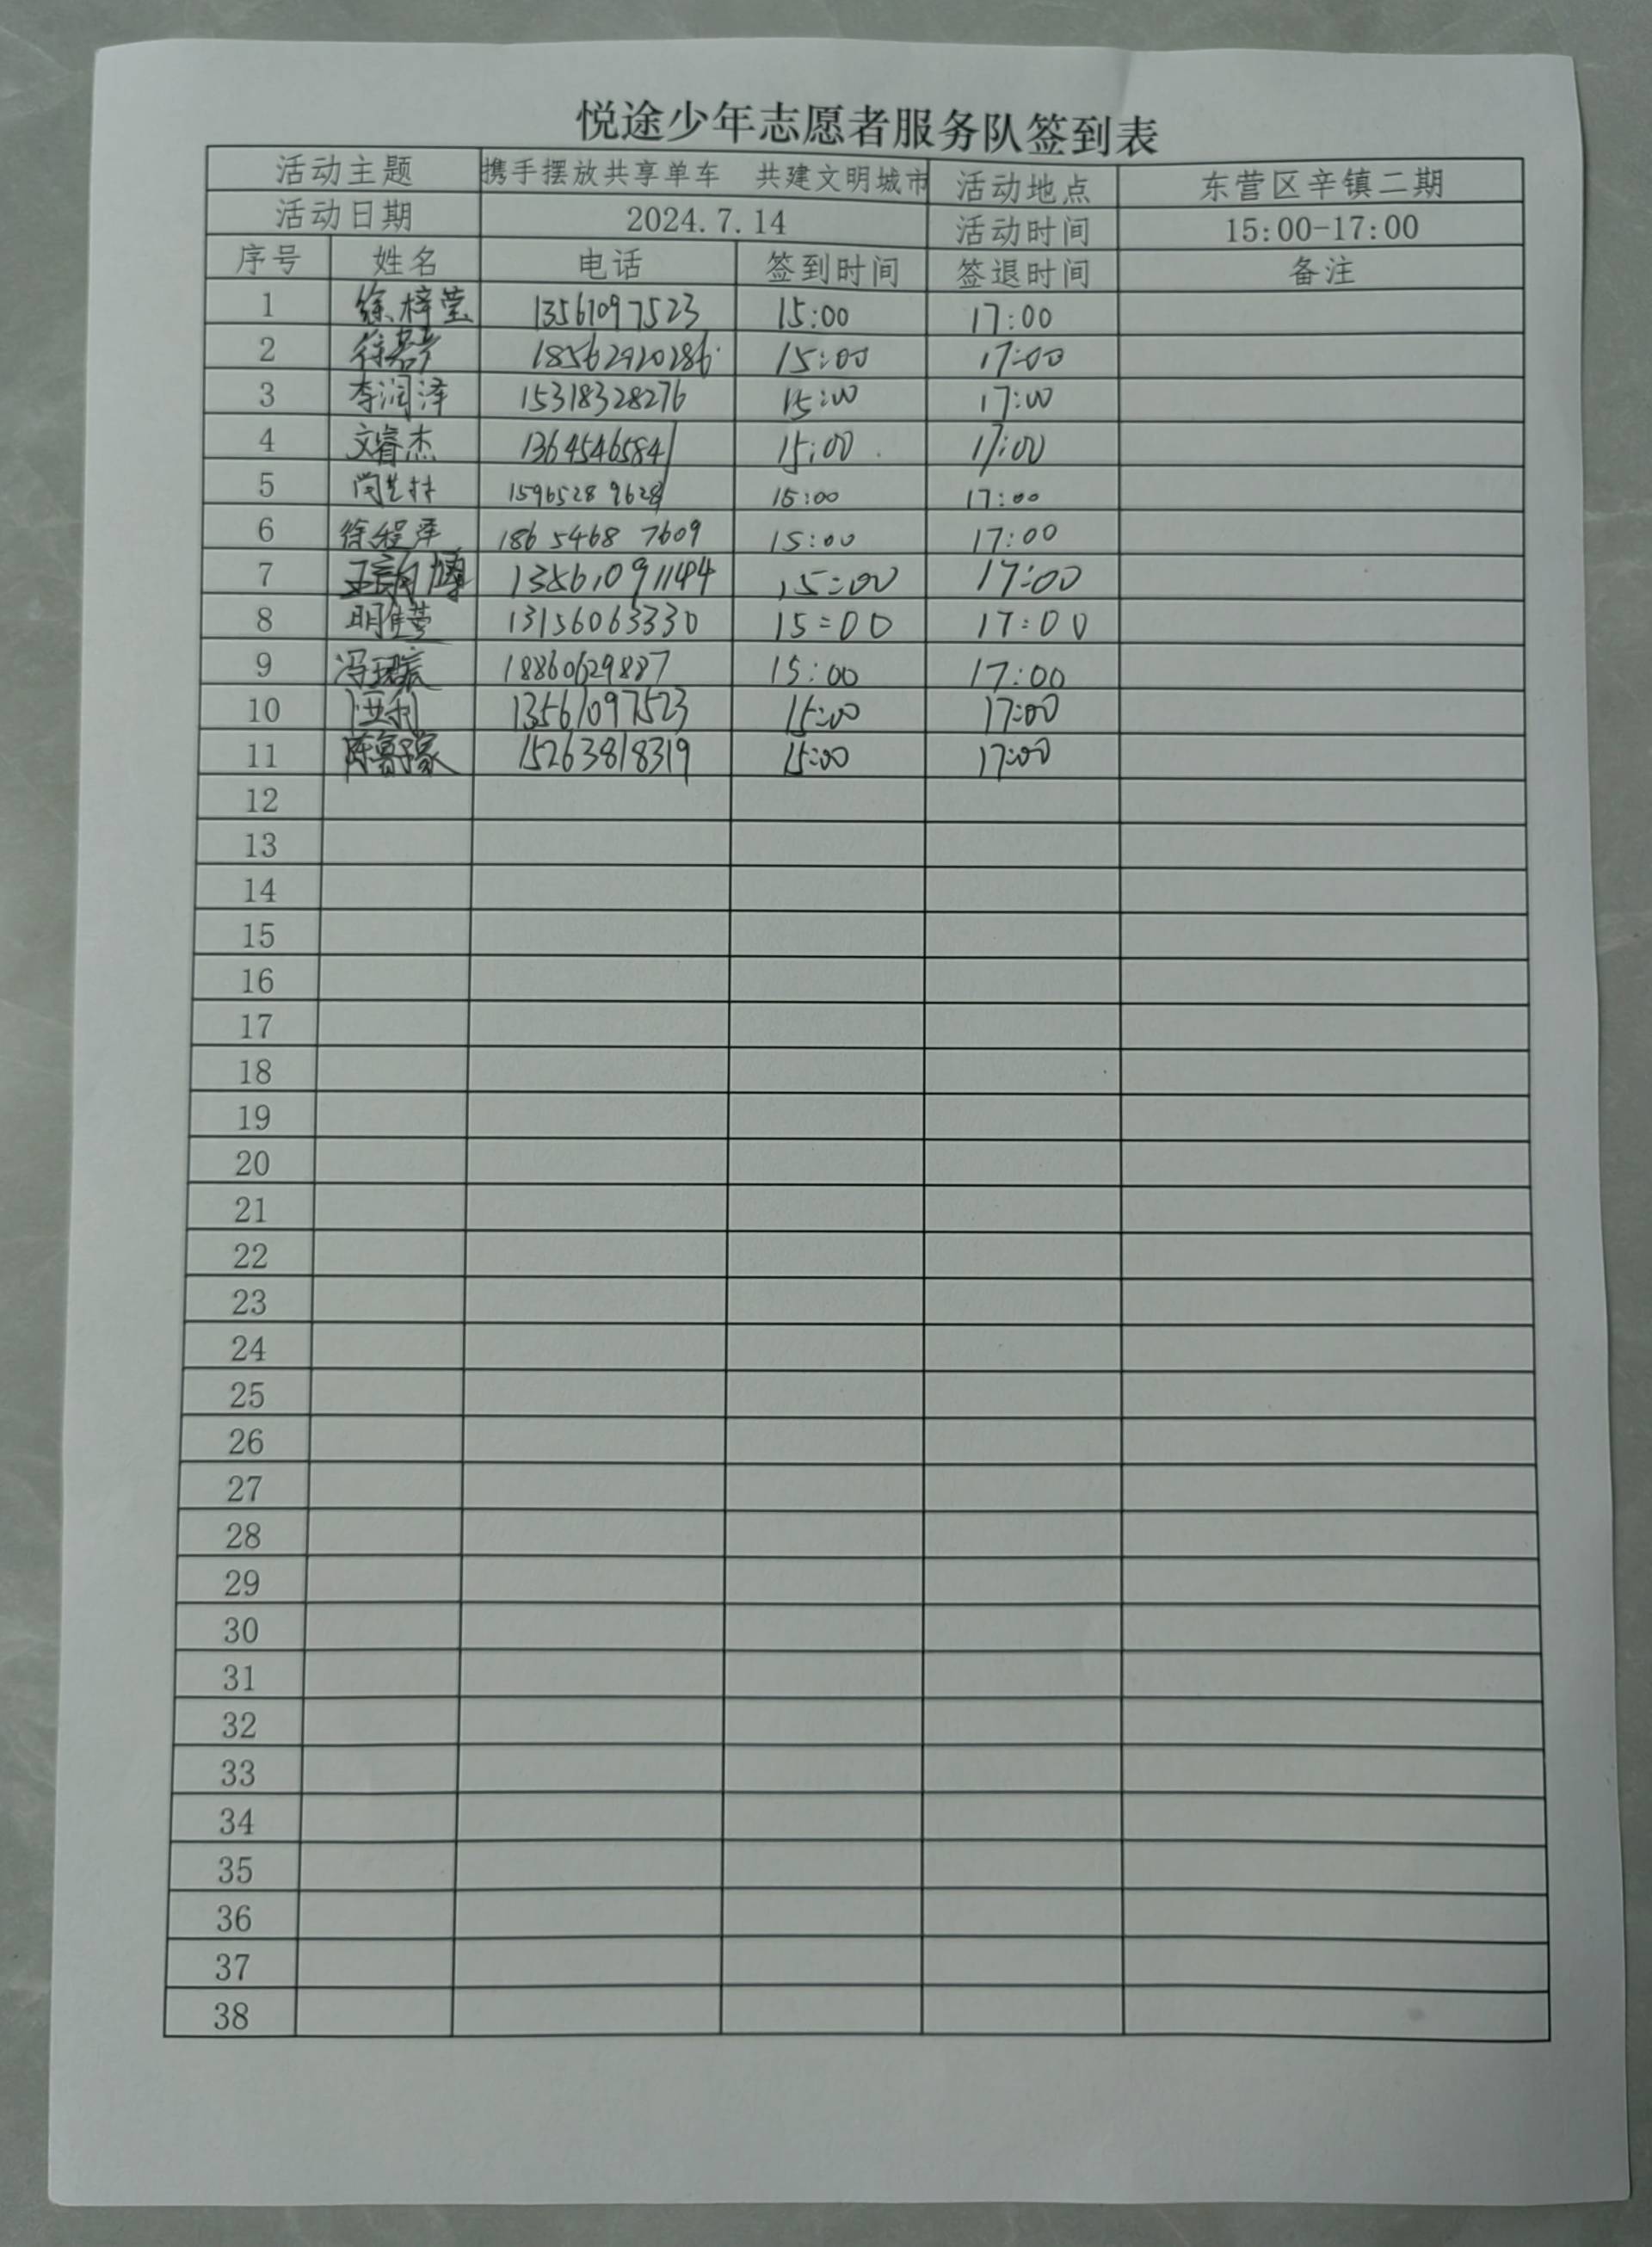 悦途少年志愿者服务队签到表
活动主题 携手摆放共享单车 共建文明城市 活动地点 东营区辛镇二期
活动日期 2024.7.14 活动时间 15:00-17:00
序号 姓名 电话 签到时间 签退时间 备注
1 徐梓莹 13561097523 15:00 17:00
2 18562920286 15:00 17:00
3 李润泽 15318328276 15:00 17:00
4 文睿杰 13645465841 15:00 17:00
5 15:00 17:00
6 徐程泽 18654687609 15:00 17:00
7 15:00 17:00
8 13156063330 15=00 17:00
9 18860629887 15:00 17:00
10 13561097523 15:00 17:00
11 15263818319 15:00 17:00
12
13
14
15
16
17
18
19
20
21
22
23
24
25
26
27
28
29
30
31
32
33
34
35
36
37
38